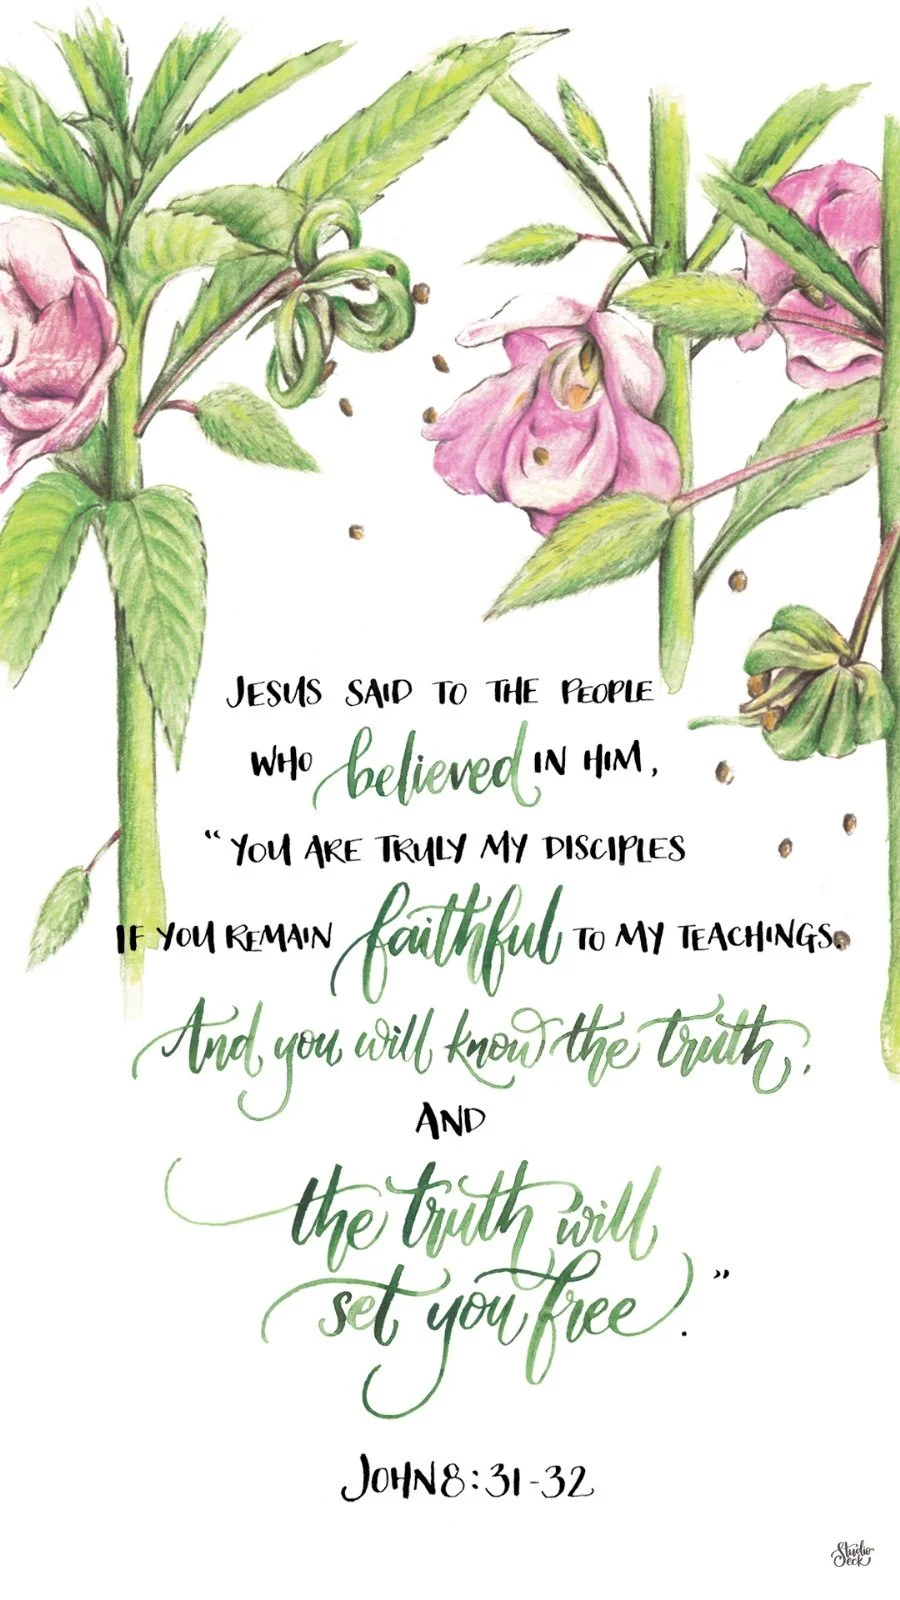 JESUS SAID TO THE PEOPLE
WHO believed IN HIM,
“YOU ARE TRULY MY DISCIPLES
IF YOU REMAIN faithful TO MY TEACHINGS.
And you will know the truth,
AND
the truth will
set you free.”
JOHN 8:31-32
Studio
eck